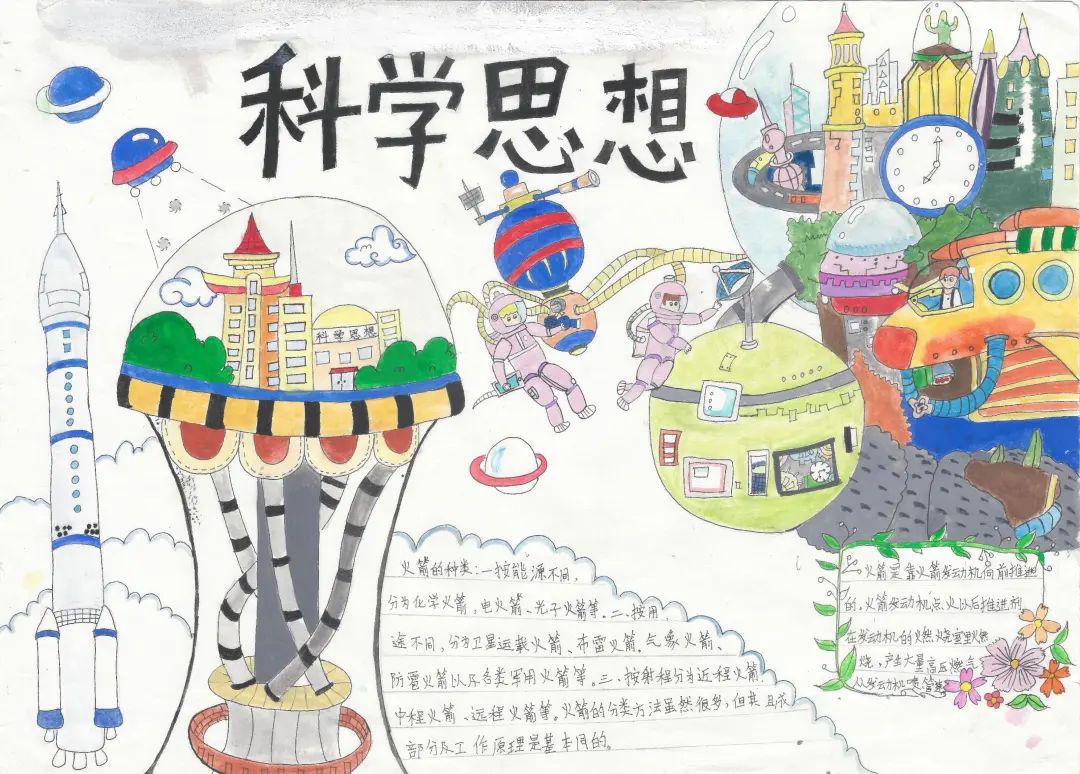 科学思想
科学思想
火箭的种类：一按能源不同，
分为化学火箭，电火箭、光子火箭等。二、按用
途不同，分为卫星运载火箭、布雷火箭。气象火箭、
防雹火箭以及各类军用火箭等。三、按射程分为近程火箭
中程火箭、远程火箭等。火箭的分类方法虽然很多，但其
部分及工作原理是基本同的。
火箭是靠火箭发动机向前推进
的。火箭发动机点火以后推进剂
在发动机的燃烧室里燃
烧，产生大量高压燃气
从发动机喷管